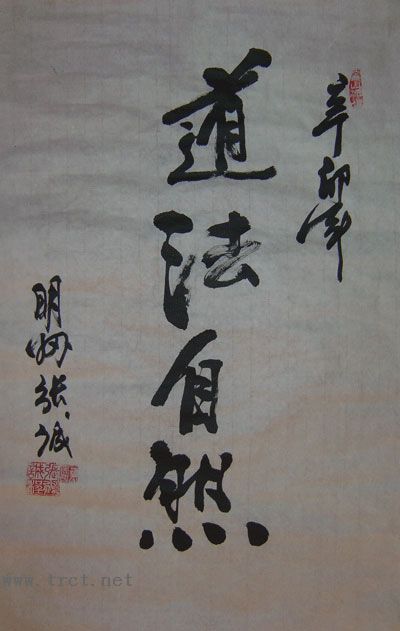 辛卯年
道法自然
明州张诚
www.trct.net